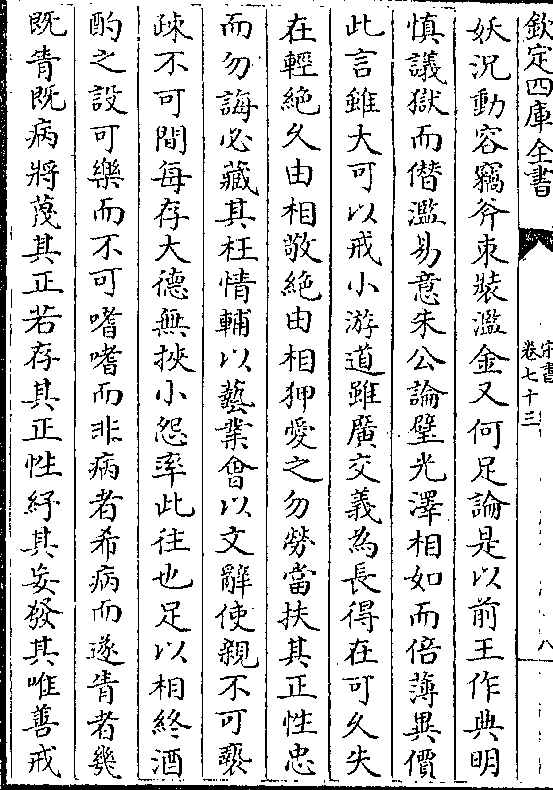 欽定四庫全書
宋書
卷七十三
八
妖況動容竊斧束裝濫金又何足論是以前王作典明
慎議獄而僭濫易意朱公論璧光澤相如而倍薄異價
此言雖大可以戒小游道雖廣交義為長得在可久失
在輕絶久由相敬絶由相狎愛之勿勞當扶其正性忠
而勿誨必藏其枉情輔以藝業會以文辭使親不可䙝
疎不可間每存大德無挾小怨率此往也足以相終酒
酌之設可樂而不可嗜嗜而非病者希病而遂眚者幾
既眚既病將蔑其正若存其正性紓其妄發其唯善戒